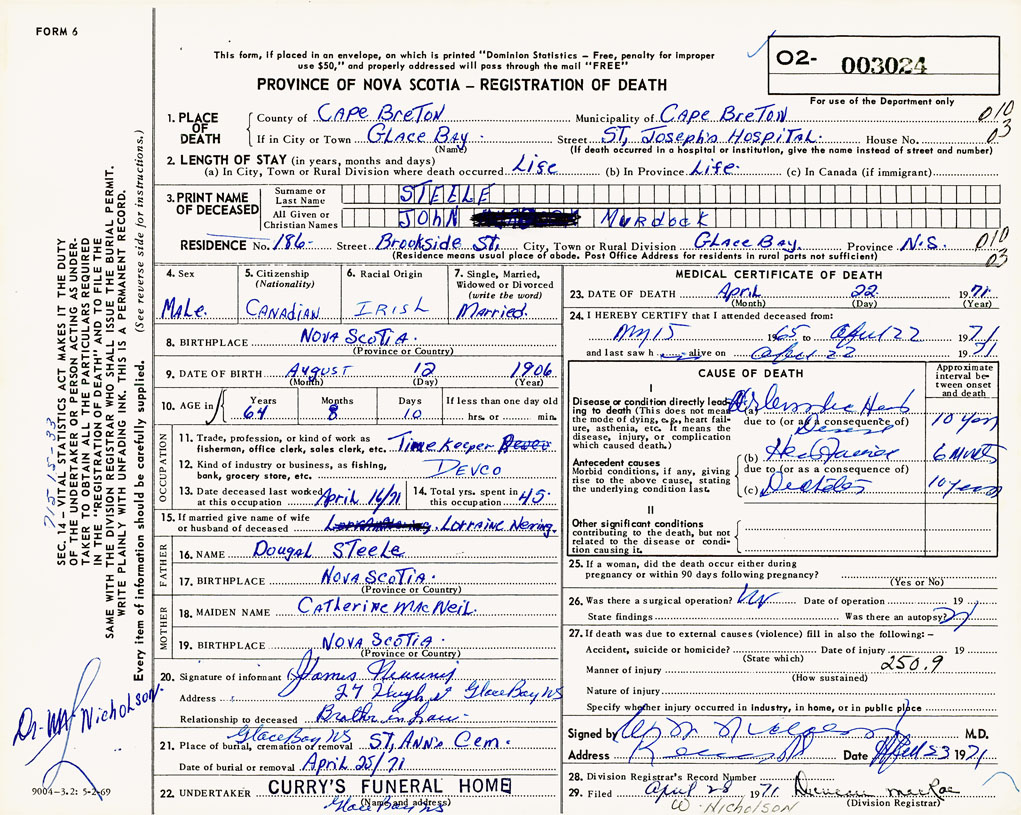 FORM 6
This form, if placed in an envelope, on which is printed "Dominion Statistics – Free, penalty for improper
use $50," and properly addressed will pass through the mail "FREE"
PROVINCE OF NOVA SCOTIA – REGISTRATION OF DEATH
O2- 003024
For use of the Department only
1. PLACE OF DEATH County of CAPE BRETON Municipality of CAPE BRETON 010
If in City or Town GLACE BAY. Street ST, Joseph's Hospital. House No. 03
(Name) (If death occurred in a hospital or institution, give the name instead of street and number)
2. LENGTH OF STAY (in years, months and days)
(a) In City, Town or Rural Division where death occurred Life (b) In Province Life. (c) In Canada (if immigrant)
3. PRINT NAME OF DECEASED Surname or Last Name STEELE
All Given or Christian Names JOHN Murdock
RESIDENCE No. 186- Street Brookside St, City, Town or Rural Division GLACE BAY. Province N.S. 010
(Residence means usual place of abode. Post Office Address for residents in rural parts not sufficient) 03
4. Sex MALe.
5. Citizenship (Nationality) CANADIAN
6. Racial Origin IRISH
7. Single, Married, Widowed or Divorced (write the word) Married.
8. BIRTHPLACE NOVA SCOTIA.
(Province or Country)
9. DATE OF BIRTH AUGUST 12 1906
(Month) (Day) (Year)
10. AGE in Years 64 Months 8 Days 10 If less than one day old hrs. or min.
OCCUPATION
11. Trade, profession, or kind of work as fisherman, office clerk, sales clerk, etc. Time Keeper
12. Kind of industry or business, as fishing, bank, grocery store, etc. DEVCO
13. Date deceased last worked at this occupation April 16/71
14. Total yrs. spent in this occupation 45.
15. If married give name of wife or husband of deceased LORRAINE
FATHER
16. NAME Dougal STeele
17. BIRTHPLACE NOVA SCOTIA.
(Province or Country)
MOTHER
18. MAIDEN NAME CATHERINE MACNEIL.
19. BIRTHPLACE NOVA SCOTIA.
(Province or Country)
20. Signature of informant James
Address 27 Hugh St Glace Bay NS
Relationship to deceased Brother in Law
Glace Bay NS
21. Place of burial, cremation or removal ST, ANN'S Cem.
Date of burial or removal April 25/71
22. UNDERTAKER CURRY'S FUNERAL HOME
(Name and address) Glace Bay NS
MEDICAL CERTIFICATE OF DEATH
23. DATE OF DEATH April 22 1971
(Month) (Day) (Year)
24. I HEREBY CERTIFY that I attended deceased from:
15 1965 to April 22 1971
and last saw h alive on April 22 1971
CAUSE OF DEATH
Approximate interval between onset and death
I
Disease or condition directly leading to death (This does not mean the mode of dying, e.g., heart failure, asthenia, etc. It means the disease, injury, or complication which caused death.)
(a) Heart
due to (or as a consequence of) 10 years
Disease
Antecedent causes
Morbid conditions, if any, giving rise to the above cause, stating the underlying condition last.
(b) 6 months
due to (or as a consequence of)
(c) Diabetes 10 years
II
Other significant conditions contributing to the death, but not related to the disease or condition causing it.
25. If a woman, did the death occur either during pregnancy or within 90 days following pregnancy?
(Yes or No)
26. Was there a surgical operation? Date of operation 19
State findings Was there an autopsy?
27. If death was due to external causes (violence) fill in also the following: –
Accident, suicide or homicide? Date of injury 19
(State which) 250.9
Manner of injury
(How sustained)
Nature of injury
Specify whether injury occurred in industry, in home, or in public place
Signed by M.D.
Address Date April 23 1971
28. Division Registrar's Record Number
29. Filed April 28 1971 Duncan MacRae
W. NICHOLSON (Division Registrar)
SEC. 14 – VITAL STATISTICS ACT MAKES IT THE DUTY
OF THE UNDERTAKER OR PERSON ACTING AS UNDER-
TAKER TO OBTAIN ALL THE PARTICULARS REQUIRED
IN THE "REGISTRATION OF DEATH" AND TO FILE THE
SAME WITH THE DIVISION REGISTRAR WHO SHALL ISSUE THE BURIAL PERMIT.
WRITE PLAINLY WITH UNFADING INK. THIS IS A PERMANENT RECORD.
Every item of information should be carefully supplied. (See reverse side for instructions.)
715-15-33
Dr. Nicholson.
9004–3.2: 5-2-69